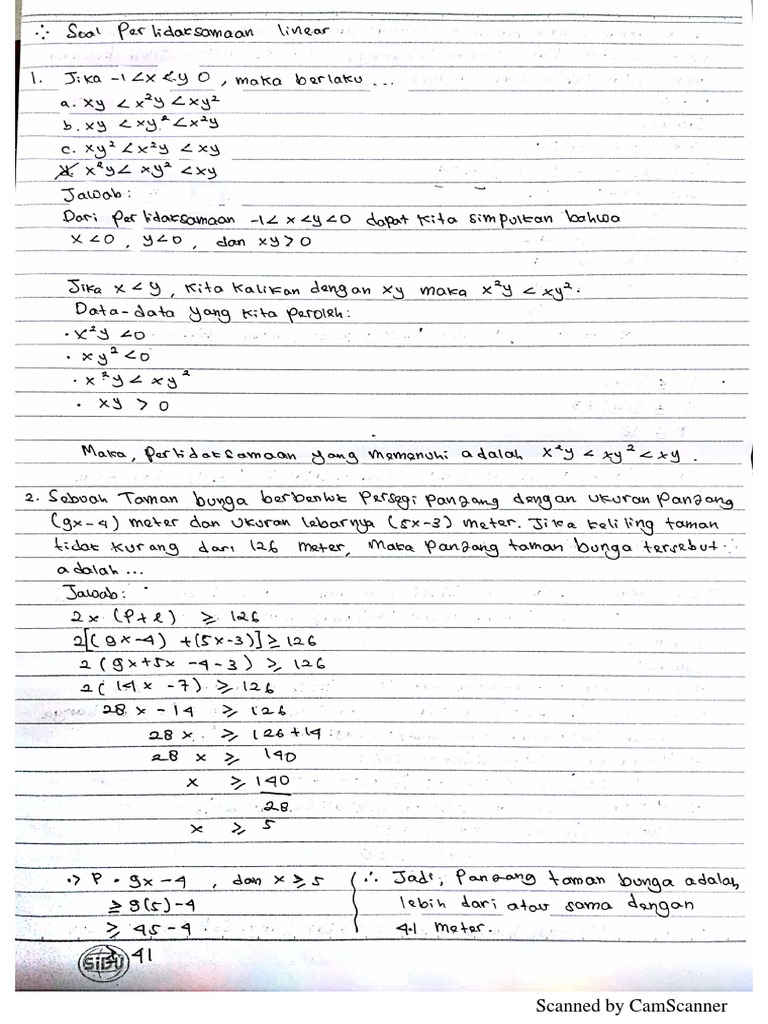 ∴ Soal Pertidaksamaan linear
1. Jika -1 < x < y 0 , maka berlaku ...
a. xy < x²y < xy²
b. xy < xy² < x²y
c. xy² < x²y < xy
x²y < xy² < xy
Jawab :
Dari Pertidaksamaan -1 < x < y < 0 dapat kita simpulkan bahwa
x < 0 , y < 0 , dan xy > 0
Jika x < y , kita kalikan dengan xy maka x²y < xy².
Data-data yang kita peroleh :
• x²y < 0
• xy² < 0
• x²y < xy²
• xy > 0
Maka, Pertidaksamaan yang memenuhi adalah x²y < xy² < xy .
2. Sebuah Taman bunga berbentuk Persegi Panjang dengan ukuran Panjang
(9x-4) meter dan ukuran lebarnya (5x-3) meter. Jika keliling taman
tidak kurang dari 126 meter, Maka Panjang taman bunga tersebut
adalah ...
Jawab :
2 x (P + l) ≥ 126
2[(9x-4) + (5x-3)] ≥ 126
2 (9x+5x -4-3) ≥ 126
2( 14x -7) ≥ 126
28 x - 14 ≥ 126
28 x ≥ 126 + 14
28 x ≥ 140
x ≥ 140
28
x ≥ 5
•> P = 9x-4 , dan x ≥ 5
≥ 9(5)-4
≥ 45-4
≥ 41
∴ Jadi, Panjang taman bunga adalah
lebih dari atau sama dengan
41 meter.
SiDU
Scanned by CamScanner